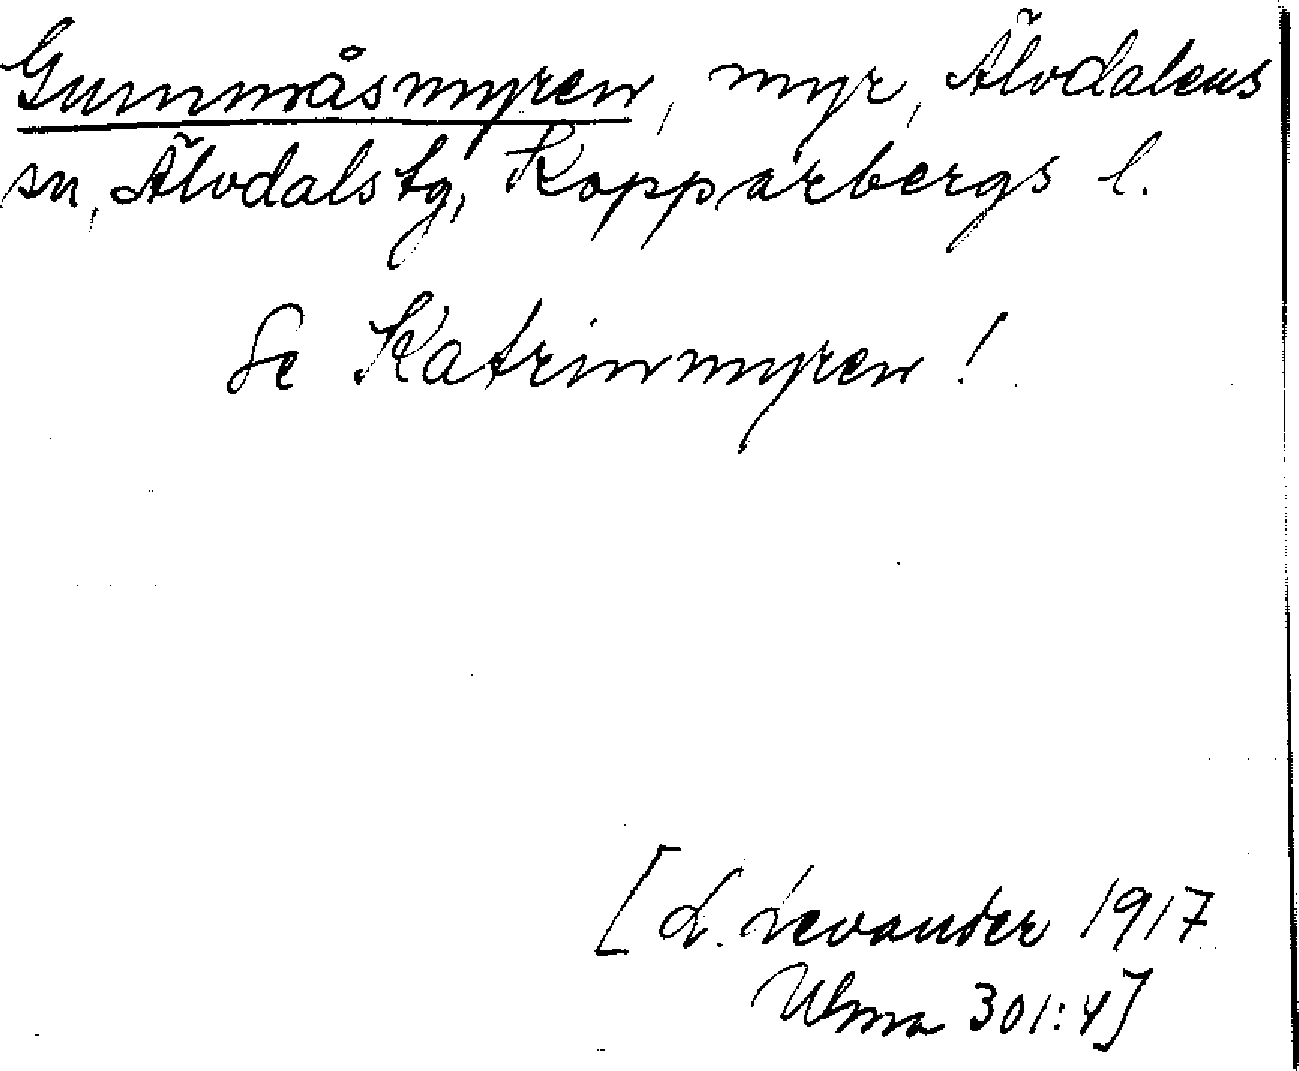 Gummåsmyren, myr, Älvdalens
sn, Älvdals tg, Kopparbergs l.
Se Katrinmyren!
[L. Levander 1917
Ulma 301:4]